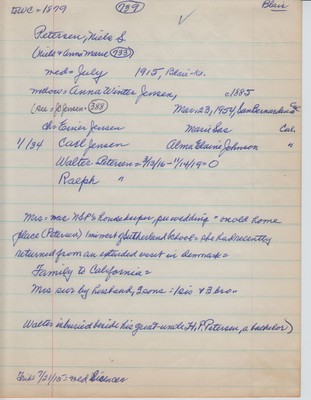 DWC = 1879 739 Blair
Petersen, Niels S.
(Niels & Anna Marie 733)
md = July 1915, Blair =
widow = Anna Winter Jensen, c1885
(sis = Jensen 388 Mar. 23, 1954, San Bernardino
ch = Einer Jensen Marie Cal.
1/34 Carl Jensen Alma Elaine Johnson "
Walter Petersen = 9/3/16 - 11/14/19 = 0
Ralph "
Mrs = was NSP's housekeeper, pre wedding = on old home
place (Petersen) 1 mi west of Sutherland School = she had recently
returned from an extended visit in Denmark =
Family to California =
Mrs surv by husband, 2 sons = 1 sis & 3 bro =
Walter is buried beside his great-uncle H. P. Petersen, a bachelor)
7/21/15 = wed license